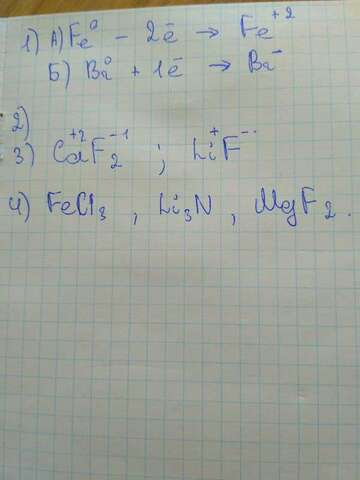 1) А) Fe⁰ - 2ē → Fe⁺²
Б) Br⁰ + 1ē → Br⁻
2)
3) Ca⁺²F₂⁻¹ ; Li⁺F⁻
4) FeCl₃ , Li₃N , MgF₂.